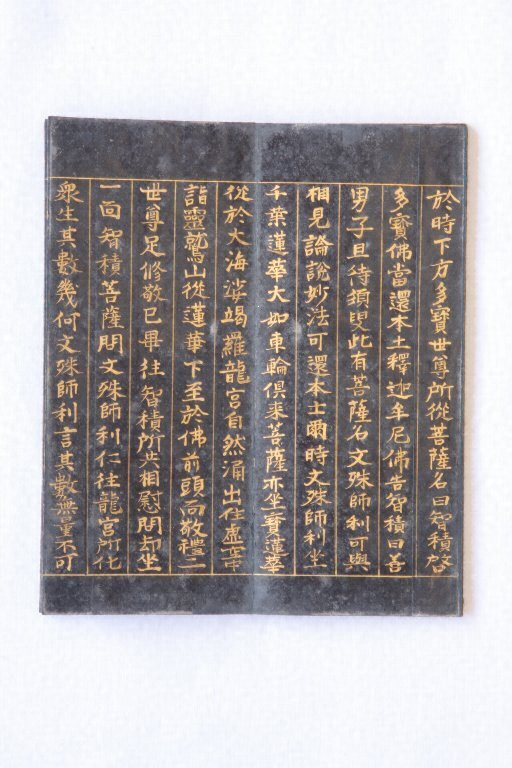 於時下方多寶世尊所從菩薩名曰智積啓
多寶佛當還本土釋迦牟尼佛告智積曰善
男子且待須臾此有菩薩名文殊師利可與
相見論說妙法可還本土爾時文殊師利坐
千葉蓮華大如車輪俱來菩薩亦坐寶蓮華
從於大海娑竭羅龍宮自然涌出住虛空中
詣靈鷲山從蓮華下至於佛前頭面敬禮二
世尊足修敬已畢往智積所共相慰問却坐
一面智積菩薩問文殊師利仁往龍宮所化
衆生其數幾何文殊師利言其數無量不可